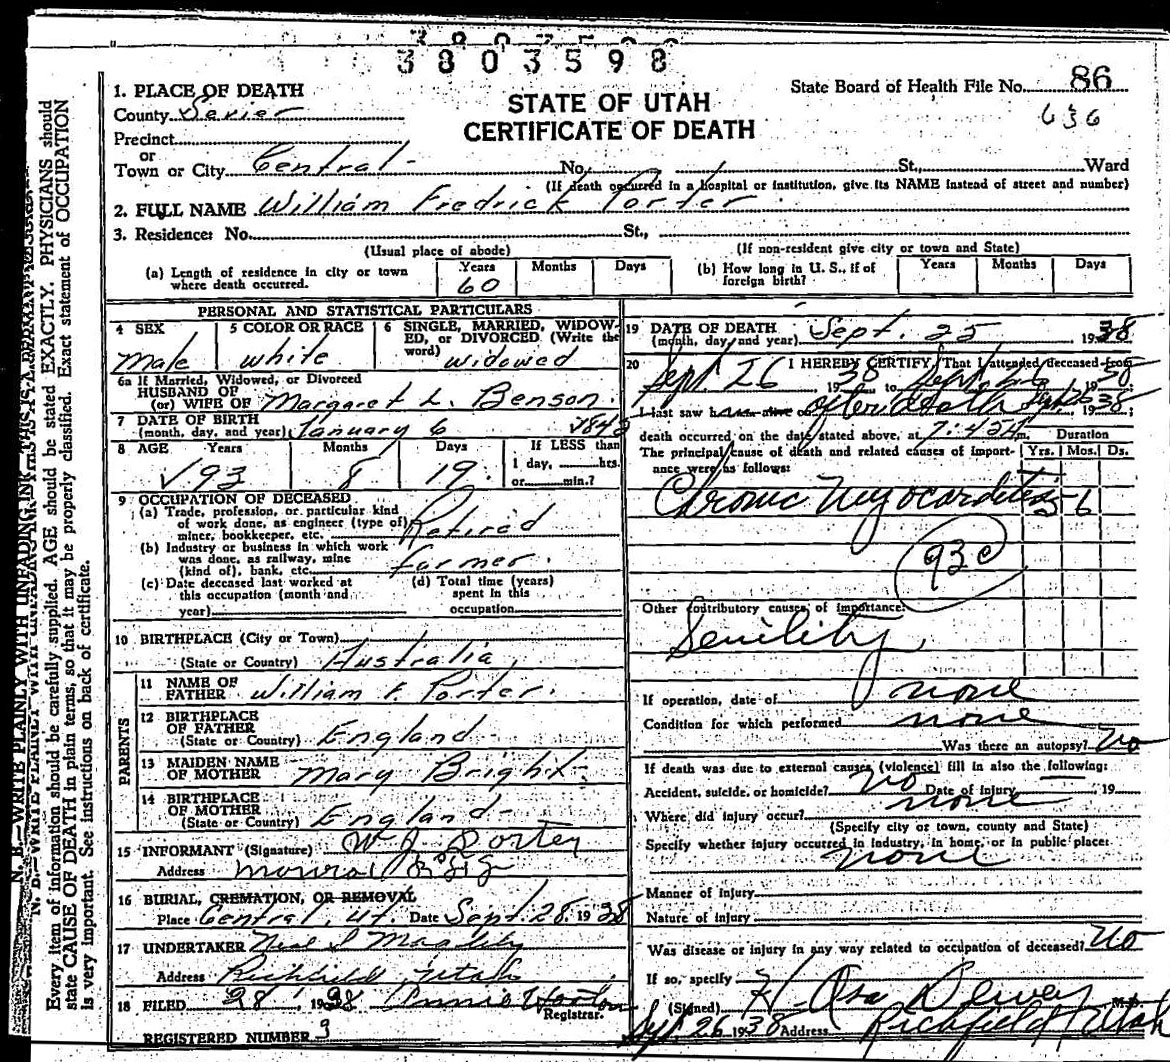 3803598
State Board of Health File No. 86
636
STATE OF UTAH
CERTIFICATE OF DEATH
1. PLACE OF DEATH
County Sevier
Precinct
or
Town or City Central No. St., Ward
(If death occurred in a hospital or institution, give its NAME instead of street and number)
2. FULL NAME William Fredrick Porter
3. Residence: No. St.,
(Usual place of abode) (If non-resident give city or town and State)
(a) Length of residence in city or town where death occurred. Years 60 Months Days
(b) How long in U. S., if of foreign birth? Years Months Days
PERSONAL AND STATISTICAL PARTICULARS
4 SEX male
5 COLOR OR RACE white
6 SINGLE, MARRIED, WIDOWED, or DIVORCED (Write the word) widowed
6a If Married, Widowed, or Divorced
HUSBAND OF
(or) WIFE OF Margaret L. Benson.
7 DATE OF BIRTH
(month, day, and year) January 6
8 AGE Years 93 Months 8 Days 19
If LESS than
1 day, hrs.
or min.?
9 OCCUPATION OF DECEASED
(a) Trade, profession, or particular kind
of work done, as engineer (type of)
miner, bookkeeper, etc. Retired
(b) Industry or business in which work
was done, as railway, mine
(kind of), bank, etc. farmer.
(c) Date deceased last worked at
this occupation (month and
year)
(d) Total time (years)
spent in this
occupation
10 BIRTHPLACE (City or Town)
(State or Country) Australia
PARENTS
11 NAME OF
FATHER William F. Porter.
12 BIRTHPLACE
OF FATHER
(State or Country) England
13 MAIDEN NAME
OF MOTHER Mary Bright
14 BIRTHPLACE
OF MOTHER
(State or Country) England
15 INFORMANT (Signature) W. J. Porter
Address
16 BURIAL, CREMATION, OR REMOVAL
Place Central, Ut. Date Sept. 28. 1938
17 UNDERTAKER
Address Richfield Utah
18 FILED 28, 1938 Annie Horton
Registrar.
REGISTERED NUMBER 9
19 DATE OF DEATH
(month, day, and year) Sept. 25 1938
20 I HEREBY CERTIFY, That I attended deceased from
Sept 26 1938 to
I last saw h alive on after death Sept 26 1938;
death occurred on the date stated above, at m. Duration
The principal cause of death and related causes of importance were as follows: Yrs. Mos. Ds.
Chronic Myocarditis 5 6
93c
Other contributory causes of importance:
Senility
If operation, date of none
Condition for which performed none
Was there an autopsy? No
If death was due to external causes (violence) fill in also the following:
Accident, suicide, or homicide? No Date of injury 19
Where did injury occur? none
(Specify city or town, county and State)
Specify whether injury occurred in industry, in home, or in public place:
none
Manner of injury
Nature of injury
Was disease or injury in any way related to occupation of deceased? No
If so, specify
(Signed) H. Asa Dewey M.D.
Sept. 26 1938 Address Richfield, Utah
N. B.—WRITE PLAINLY WITH UNFADING INK—THIS IS A
Every item of information should be carefully supplied. AGE should be stated EXACTLY. PHYSICIANS should
state CAUSE OF DEATH in plain terms, so that it may be properly classified. Exact statement of OCCUPATION
is very important. See instructions on back of certificate.